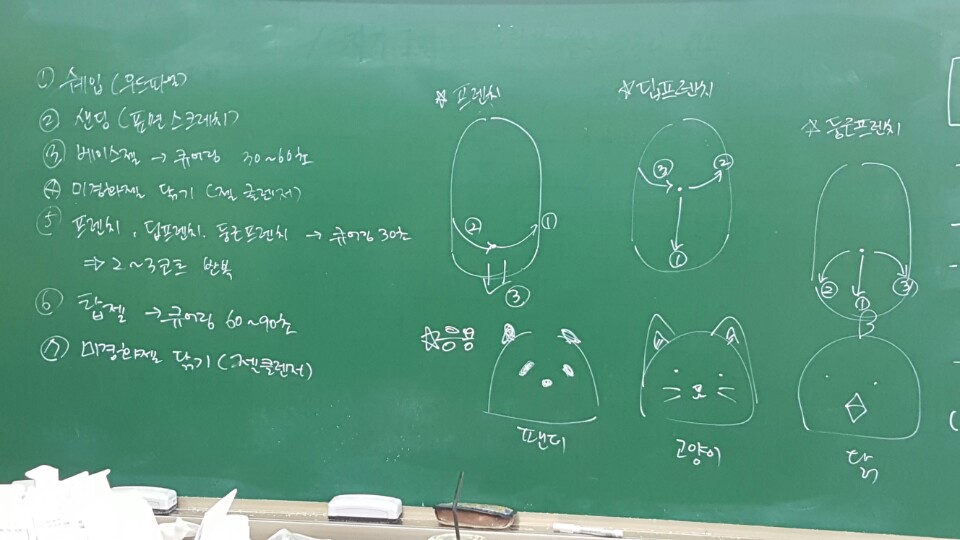 ① 쉐입 (우드파일)
② 샌딩 (표면스크래치)
③ 베이스젤 → 큐어링 30~60초
④ 미경화젤 닦기 (젤클렌저)
⑤ 프렌치, 딥프렌치. 둥근프렌치 → 큐어링 30초
⇒ 2~3코트 반복
⑥ 탑젤 → 큐어링 60~90초
⑦ 미경화젤 닦기 (젤클렌저)
☆ 프렌치
② ①
③
☆ 딥프렌치
③ ②
①
☆ 둥근프렌치
② ① ③
☆응용
팬더
고양이
닭